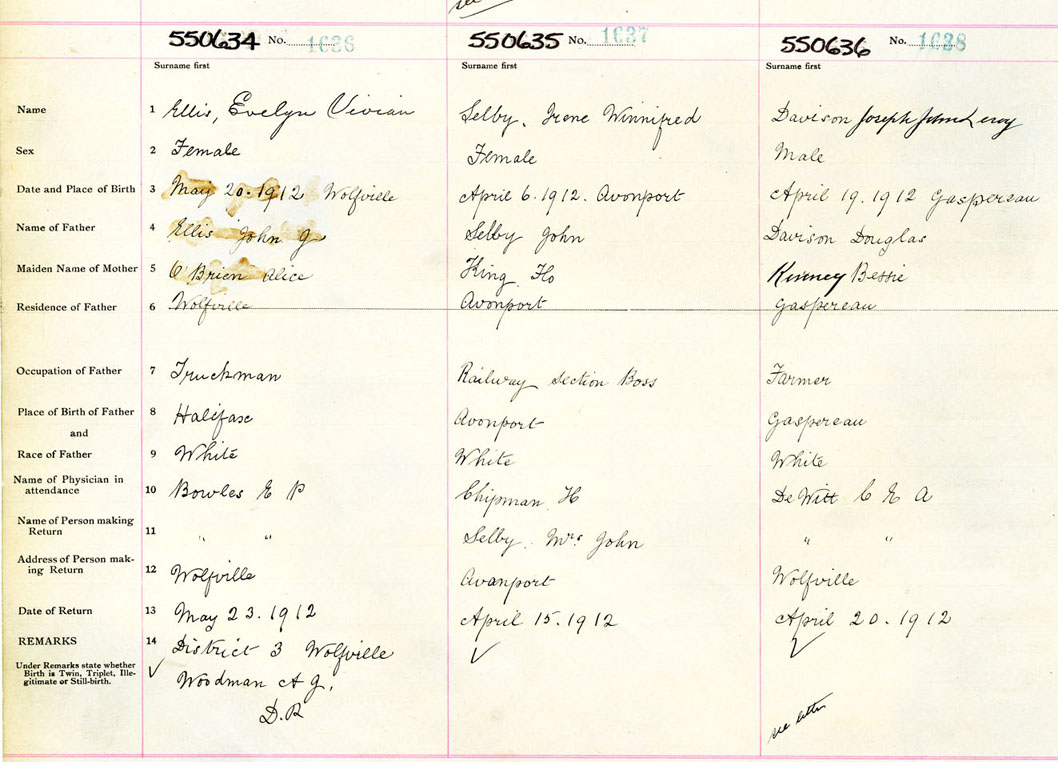 see
550634 No. 1636 550635 No. 1637 550636 No. 1638
Surname first Surname first Surname first
Name 1 Ellis, Evelyn Vivian Selby, Irene Winnifred Davison Joseph John Leroy
Sex 2 Female Female Male
Date and Place of Birth 3 May 20. 1912 Wolfville April 6. 1912. Avonport April 19. 1912 Gaspereau
Name of Father 4 Ellis John G Selby John Davison Douglas
Maiden Name of Mother 5 O'Brien Alice King Ho Kinney Bessie
Residence of Father 6 Wolfville Avonport Gaspereau
Occupation of Father 7 Truckman Railway Section Boss Farmer
Place of Birth of Father 8 Halifax Avonport Gaspereau
and
Race of Father 9 White White White
Name of Physician in
attendance 10 Bowles E P Chipman H DeWitt C E A
Name of Person making
Return 11 " " Selby. Mrs John " "
Address of Person mak-
ing Return 12 Wolfville Avanport Wolfville
Date of Return 13 May 23. 1912 April 15. 1912 April 20. 1912
REMARKS 14 District 3 Wolfville ✓ ✓
Under Remarks state whether
Birth is Twin, Triplet, Ille-
gitimate or Still-birth. ✓ Woodman A G,
D.R see letter